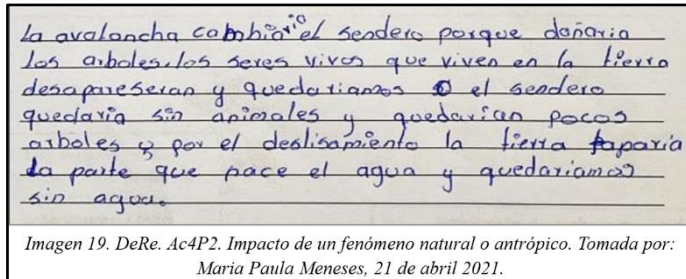 La avalancha cambiaria el sendero porque dañaria
los arboles, los seres vivos que viven en la tierra
desapareseran y quedariamos o el sendero
quedaria sin animales y quedarian pocos
arboles y por el deslisamiento la tierra taparia
la parte que nace el agua y quedariamos
sin agua.
Imagen 19. DeRe. Ac4P2. Impacto de un fenómeno natural o antrópico. Tomada por:
Maria Paula Meneses, 21 de abril 2021.